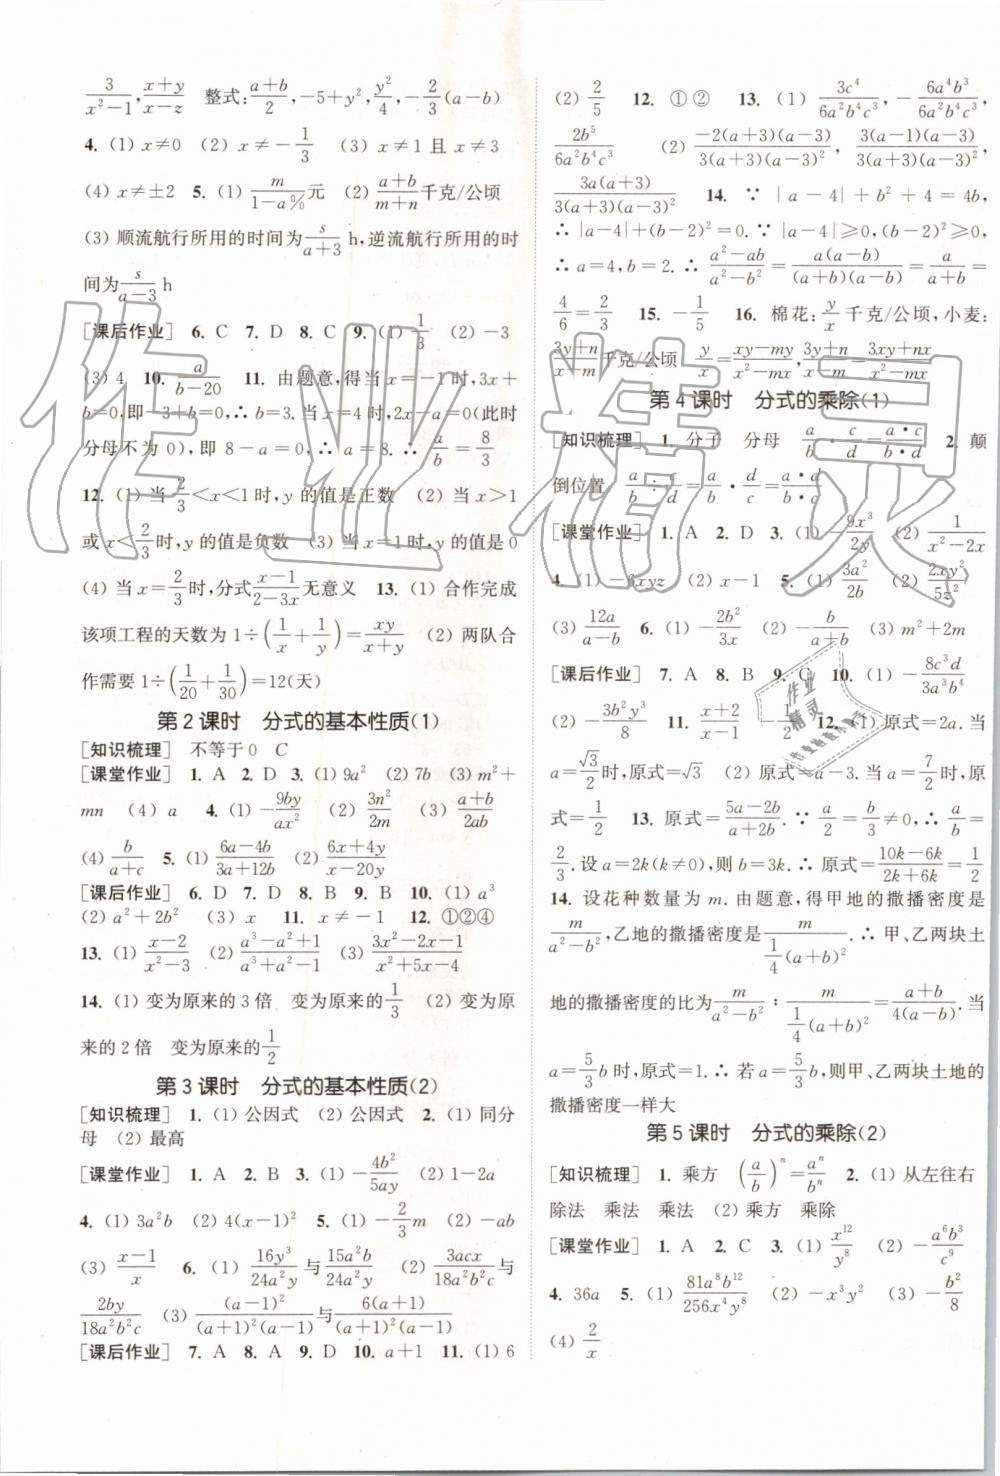 3/(x²-1), (x+y)/(x-z) 整式: (a+b)/2, -5+y², y²/4, -2/3(a-b)
4. (1) x≠0 (2) x≠-1/3 (3) x≠1 且 x≠3
(4) x≠±2 5. (1) m/(1-a%)元 (2) (a+b)/(m+n)千克/公顷
(3) 顺流航行所用的时间为s/(a+3) h,逆流航行所用的时
间为s/(a-3) h
[课后作业] 6. C 7. D 8. C 9. (1) 1/3 (2) -3
(3) 4 10. a/(b-20) 11. 由题意,得当 x=-1时,3x+
b=0,即-3+b=0,∴ b=3. 当 x=4时,2x-a=0(此时
分母不为 0),即 8-a=0. ∴ a=8. ∴ a/b=8/3
12. (1) 当 2/3<x<1时,y 的值是正数 (2) 当 x>1
或 x<2/3时,y 的值是负数 (3) 当 x=1时,y 的值是 0
(4) 当 x=2/3时,分式(x-1)/(2-3x)无意义 13. (1) 合作完成
该项工程的天数为 1÷(1/x+1/y)=xy/(x+y) (2) 两队合
作需要 1÷(1/20+1/30)=12(天)
第 2 课时 分式的基本性质(1)
[知识梳理] 不等于 0 C
[课堂作业] 1. A 2. D 3. (1) 9a² (2) 7b (3) m²+
mn (4) a 4. (1) -9by/ax² (2) 3n²/2m (3) (a+b)/2ab
(4) b/(a+c) 5. (1) (6a-4b)/(3a+12b) (2) (6x+4y)/(x-20y)
[课后作业] 6. D 7. D 8. B 9. B 10. (1) a³
(2) a²+2b² (3) x 11. x≠-1 12. ①②④
13. (1) (x-2)/(x²-3) (2) (a³-a²+1)/(a³+a²-1) (3) (3x²-2x-1)/(x²+5x-4)
14. (1) 变为原来的 3 倍 变为原来的1/3 (2) 变为原
来的 2 倍 变为原来的1/2
第 3 课时 分式的基本性质(2)
[知识梳理] 1. (1) 公因式 (2) 公因式 2. (1) 同分
母 (2) 最高
[课堂作业] 1. A 2. B 3. (1) -4b²/5ay (2) 1-2a
4. (1) 3a²b (2) 4(x-1)² 5. (1) -2/3m (2) -ab
(3) (x-1)/x 6. (1) 16y³/24a²y与15a²b/24a²y (2) 3acx/18a²b²c与
2by/18a²b²c (3) (a-1)²/((a+1)²(a-1))与6(a+1)/((a+1)²(a-1))
[课后作业] 7. A 8. A 9. D 10. a+1 11. (1) 6
(2) 2/5 12. ①② 13. (1) 3c⁴/6a²b⁴c³, -6a⁴b³/6a²b⁴c³,
2b⁵/6a²b⁴c³ (2) -2(a+3)(a-3)/(3(a+3)(a-3)²), 3(a-1)(a-3)/(3(a+3)(a-3)²),
3a(a+3)/(3(a+3)(a-3)²) 14. ∵ |a-4|+b²+4=4b,
∴ |a-4|+(b-2)²=0. ∵ |a-4|≥0,(b-2)²≥0,
∴ a=4,b=2. ∴ (a²-ab)/(a²-b²)=a(a-b)/((a+b)(a-b))=a/(a+b)=
4/6=2/3 15. -1/5 16. 棉花: y/x千克/公顷,小麦:
(3y+n)/(x+m)千克/公顷 y/x=(xy-my)/(x²-mx),(3y+n)/(x+m)=(3xy+nx)/(x²+mx)
第 4 课时 分式的乘除(1)
[知识梳理] 1. 分子 分母 a/b·c/d=a·c/b·d 2. 颠
倒位置 a/b÷c/d=a/b·d/c=a·d/b·c
[课堂作业] 1. A 2. D 3. (1) -9x³/2y (2) 1/(x²-2x)
4. (1) -6xyz (2) x-1 5. (1) 3a²/2b (2) 2xy²/5z²
(3) 12a/(a-b) 6. (1) -2b²/3x (2) -b/(a+b) (3) m²+2m
[课后作业] 7. A 8. B 9. C 10. (1) -8c³d/3a³b⁴
(2) -3b²y³/8 11. (x+2)/(x-1) -1/2 12. (1) 原式=2a. 当
a=√3/2时,原式=√3 (2) 原式=a-3. 当 a=7/2时,原
式=1/2 13. 原式=(5a-2b)/(a+2b). ∵ a/2=b/3≠0,∴ a/b=
2/3. 设 a=2k(k≠0),则 b=3k. ∴ 原式=(10k-6k)/(2k+6k)=1/2
14. 设花种数量为 m. 由题意,得甲地的撒播密度是
m/(a²-b²),乙地的撒播密度是m/(1/4(a+b)²). ∴ 甲、乙两块土
地的撒播密度的比为m/(a²-b²):m/(1/4(a+b)²)=(a+b)/(4(a-b)). 当
a=5/3b时,原式=1. ∴ 若 a=5/3b,则甲、乙两块土地的
撒播密度一样大
第 5 课时 分式的乘除(2)
[知识梳理] 1. 乘方 (a/b)ⁿ=aⁿ/bⁿ 2. (1) 从左往右
除法 乘法 乘法 (2) 乘方 乘除
[课堂作业] 1. A 2. C 3. (1) x¹²/y⁸ (2) -a⁶b³/c⁹
4. 36a 5. (1) 81a⁸b¹²/256x⁴y⁸ (2) -x³y² (3) -b²/8
(4) 2/x
作业精灵
作业
精灵